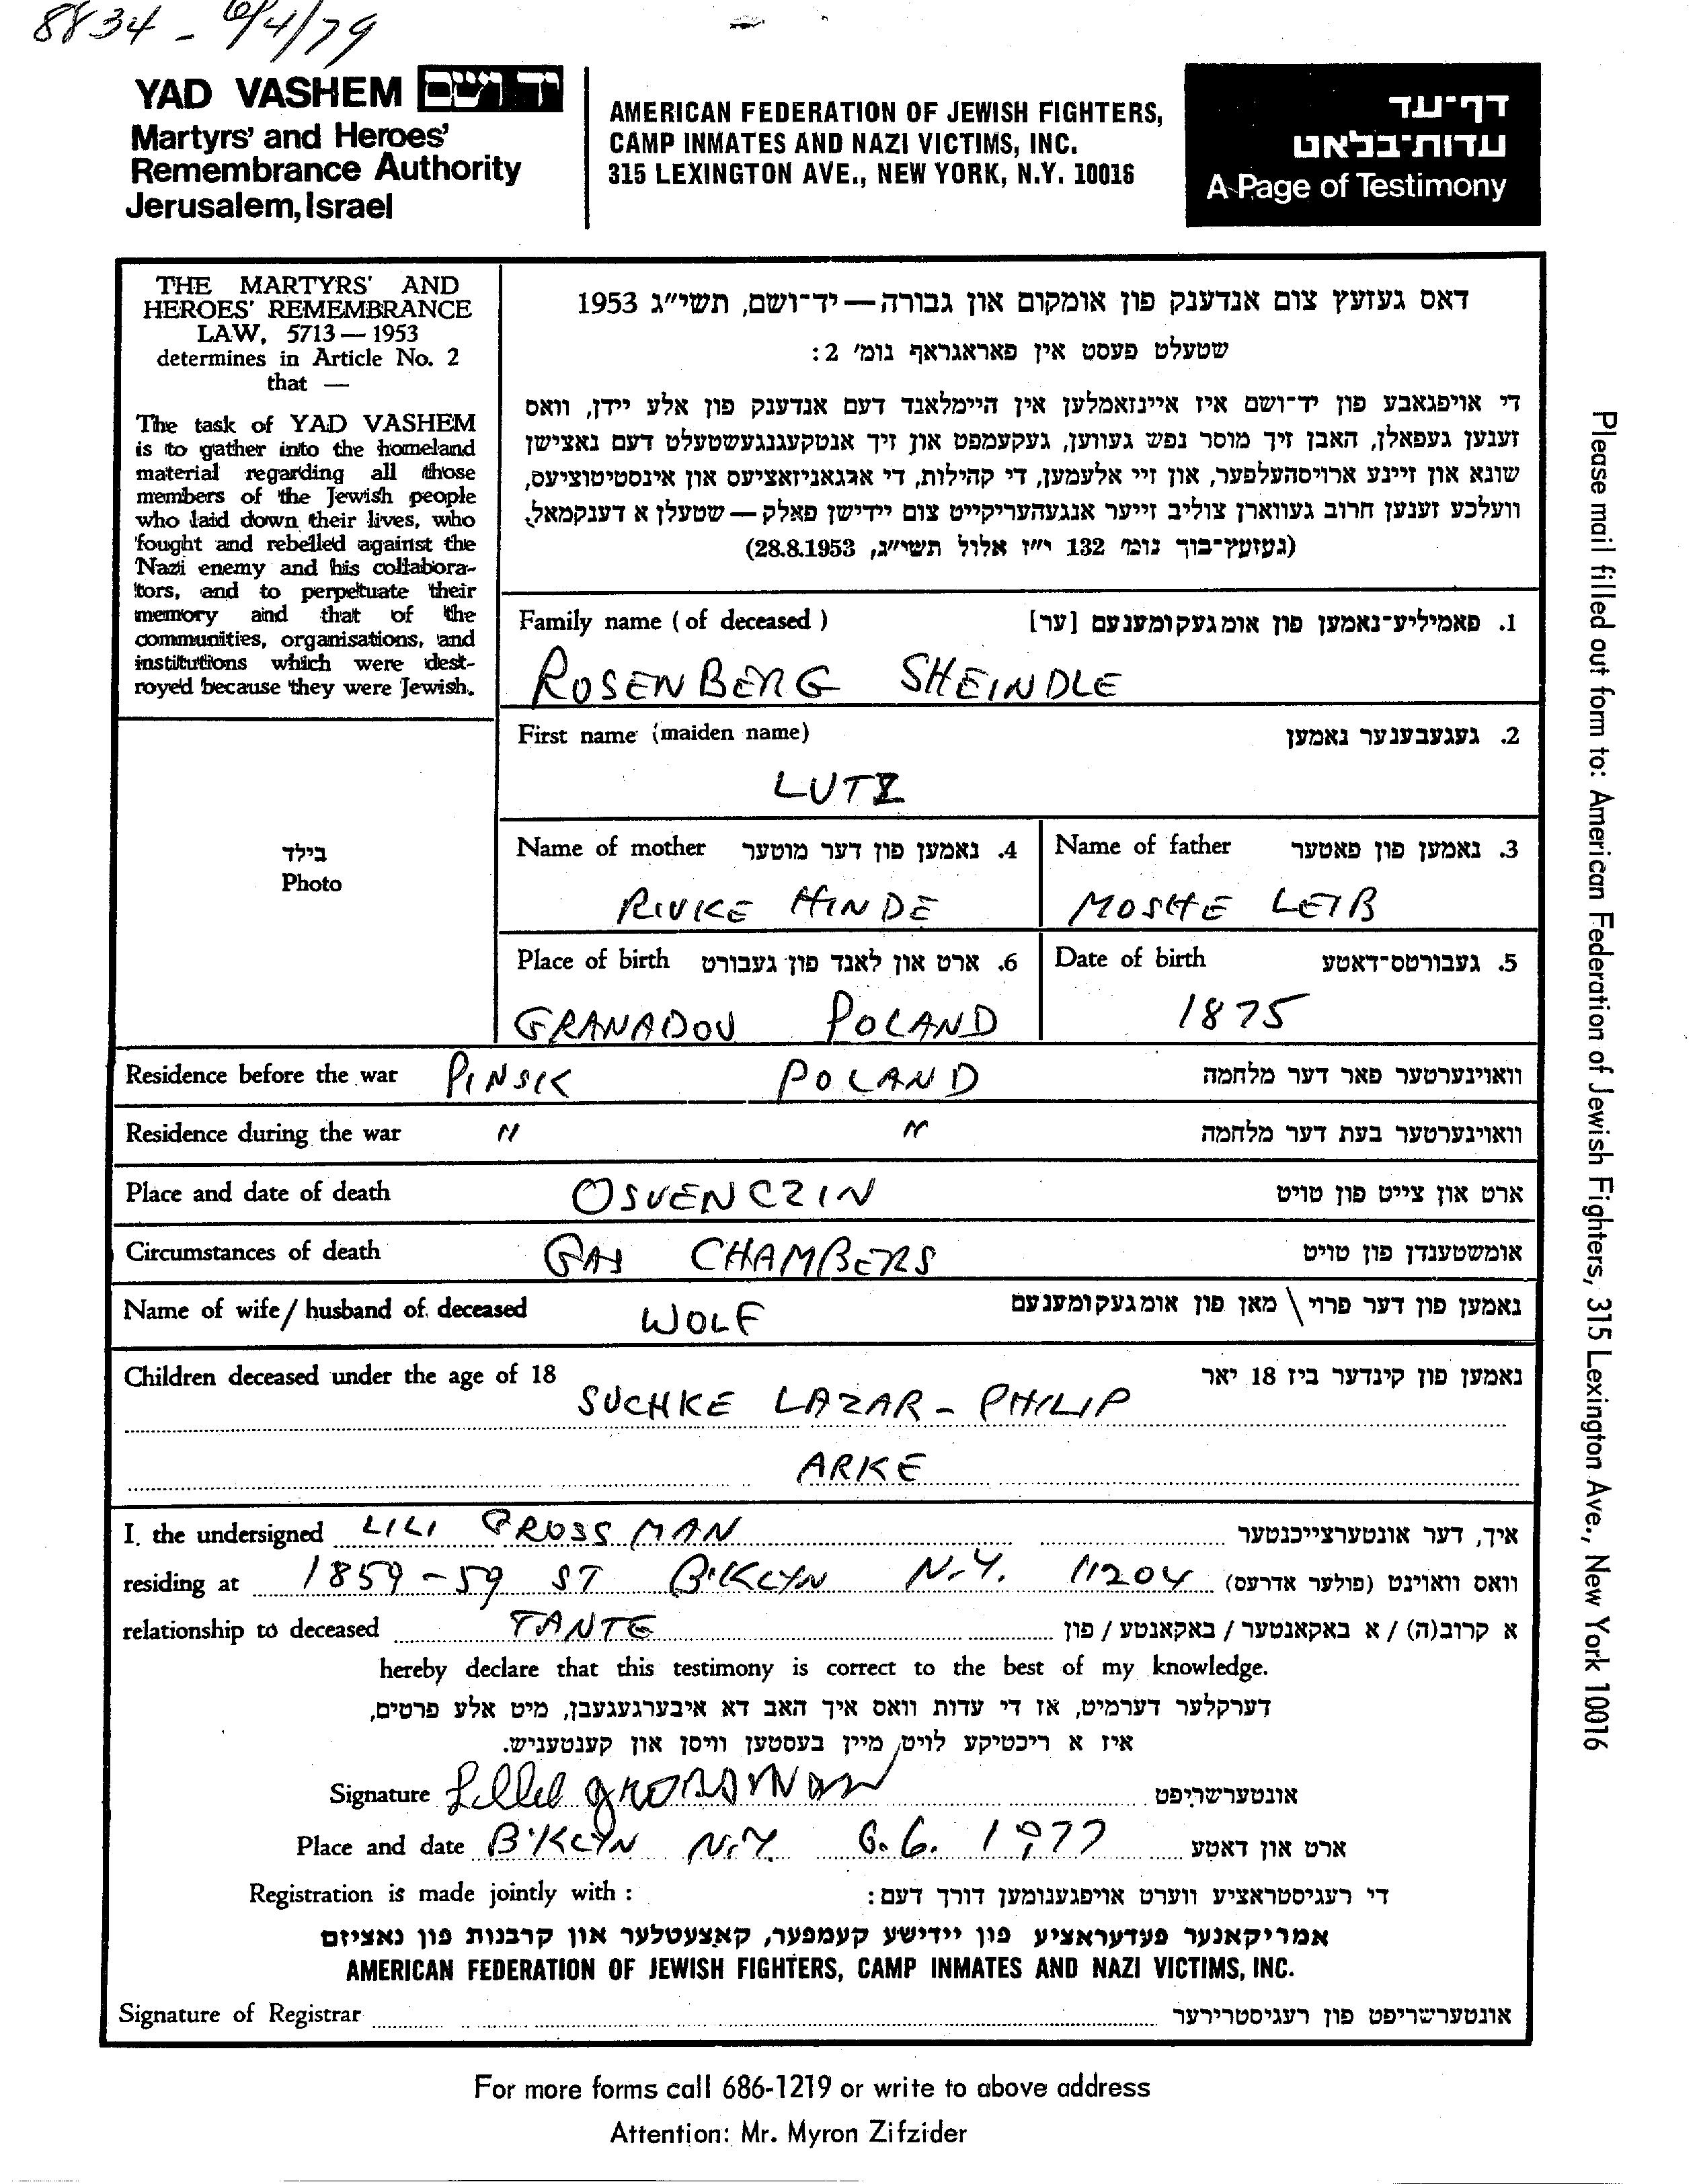 8834 - 6/4/79
YAD VASHEM יד ושם
Martyrs' and Heroes'
Remembrance Authority
Jerusalem, Israel
AMERICAN FEDERATION OF JEWISH FIGHTERS,
CAMP INMATES AND NAZI VICTIMS, INC.
315 LEXINGTON AVE., NEW YORK, N.Y. 10016
דף-עד
עדות-בלאט
A Page of Testimony
THE MARTYRS' AND
HEROES' REMEMBRANCE
LAW, 5713 — 1953
determines in Article No. 2
that —
The task of YAD VASHEM
is to gather into the homeland
material regarding all those
members of the Jewish people
who laid down their lives, who
fought and rebelled against the
Nazi enemy and his collabora-
tors, and to perpetuate their
memory and that of the
communities, organisations, and
institutions which were dest-
royed because they were Jewish.
דאס געזעץ צום אנדענק פון אומקום און גבורה — יד-ושם, תשי"ג 1953
שטעלט פעסט אין פאראגראף נומ' 2:
די אויפגאבע פון יד-ושם איז איינזאמלען אין היימלאנד דעם אנדענק פון אלע יידן, וואס
זענען געפאלן, האבן זיך מוסר נפש געווען, געקעמפט און זיך אנטקעגנגעשטעלט דעם נאצישן
שונא און זיינע ארויסהעלפער, און זיי אלעמען, די קהילות, די ארגאניזאציעס און אינסטיטוציעס,
וועלכע זענען חרוב געווארן צוליב זייער אנגעהעריקייט צום יידישן פאלק — שטעלן א דענקמאל.
(געזעץ-בוך נומ' 132 י"ז אלול תשי"ג, 28.8.1953)
Family name (of deceased) 1. פאמיליע-נאמען פון אומגעקומענעם [ער]
ROSENBERG SHEINDLE
First name (maiden name) 2. געגעבענער נאמען
LUTZ
בילד
Photo
Name of mother 4. נאמען פון דער מוטער Name of father 3. נאמען פון פאטער
RIVKE HINDE MOSHE LEIB
Place of birth 6. ארט און לאנד פון געבורט Date of birth 5. געבורטס-דאטע
GRANADOV POLAND 1875
Residence before the war PINSK POLAND וואוינערטער פאר דער מלחמה
Residence during the war " " וואוינערטער בעת דער מלחמה
Place and date of death OSVENCZIN ארט און צייט פון טויט
Circumstances of death GAS CHAMBERS אומשטענדן פון טויט
Name of wife / husband of deceased WOLF נאמען פון דער פרוי \ מאן פון אומגעקומענעם
Children deceased under the age of 18 נאמען פון קינדער ביז 18 יאר
SUCHKE LAZAR - PHILIP
ARKE
I, the undersigned LILI GROSSMAN איך, דער אונטערצייכנטער
residing at 1859 - 59 ST B'KLYN N.Y. 11204 וואס וואוינט (פולער אדרעס)
relationship to deceased TANTE א קרוב(ה) / א באקאנטער / באקאנטע / פון
hereby declare that this testimony is correct to the best of my knowledge.
דערקלער דערמיט, אז די עדות וואס איך האב דא איבערגעגעבן, מיט אלע פרטים,
איז א ריכטיקע לויט מיין בעסטען וויסן און קענטעניש.
Signature Lillel Grossman אונטערשריפט
Place and date B'KLYN N.Y. 6.6. 1977 ארט און דאטע
Registration is made jointly with : די רעגיסטראציע ווערט אויפגענומען דורך דעם:
אמריקאנער פעדעראציע פון יידישע קעמפער, קאצעטלער און קרבנות פון נאציזם
AMERICAN FEDERATION OF JEWISH FIGHTERS, CAMP INMATES AND NAZI VICTIMS, INC.
Signature of Registrar אונטערשריפט פון רעגיסטרירער
For more forms call 686-1219 or write to above address
Attention: Mr. Myron Zifzider
Please mail filled out form to: American Federation of Jewish Fighters, 315 Lexington Ave., New York 10016